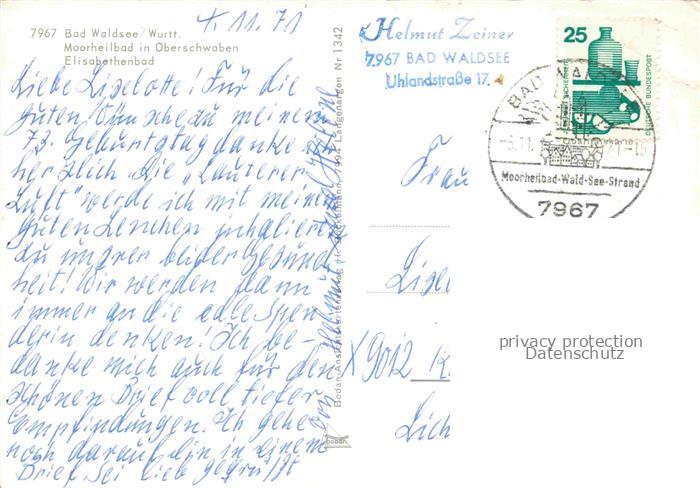 7967 Bad Waldsee/Wurtt.
Moorheilbad in Oberschwaben
Elisabethenbad
11.71
Liebe Liselotte! Für die
guten Wünsche zu meinem
73. Geburtstag danke
herzlich. Die „Lauterer
Luft" werde ich mit meinem
guten Lenchen inhalieren
zu unsrer beider Gesund
heit! Wir werden dann
immer an die edle Spen
derin denken! Ich be-
danke mich auch für den
schönen Brief voll tiefer
Empfindungen. Ich gehe
noch darauf ein in einem
Brief. Sei lieb gegrüßt
von Helmut und Helene
Bodan-Ansichtskartenverlag Langenargen Nr 1342
bodan
Helmut Zeiner
7967 BAD WALDSEE
Uhlandstraße 17
25
DEUTSCHE BUNDESPOST
BAD WALDSEE
Moorheilbad-Wald-See-Strand
7967
Frau
9012
privacy protection
Datenschutz